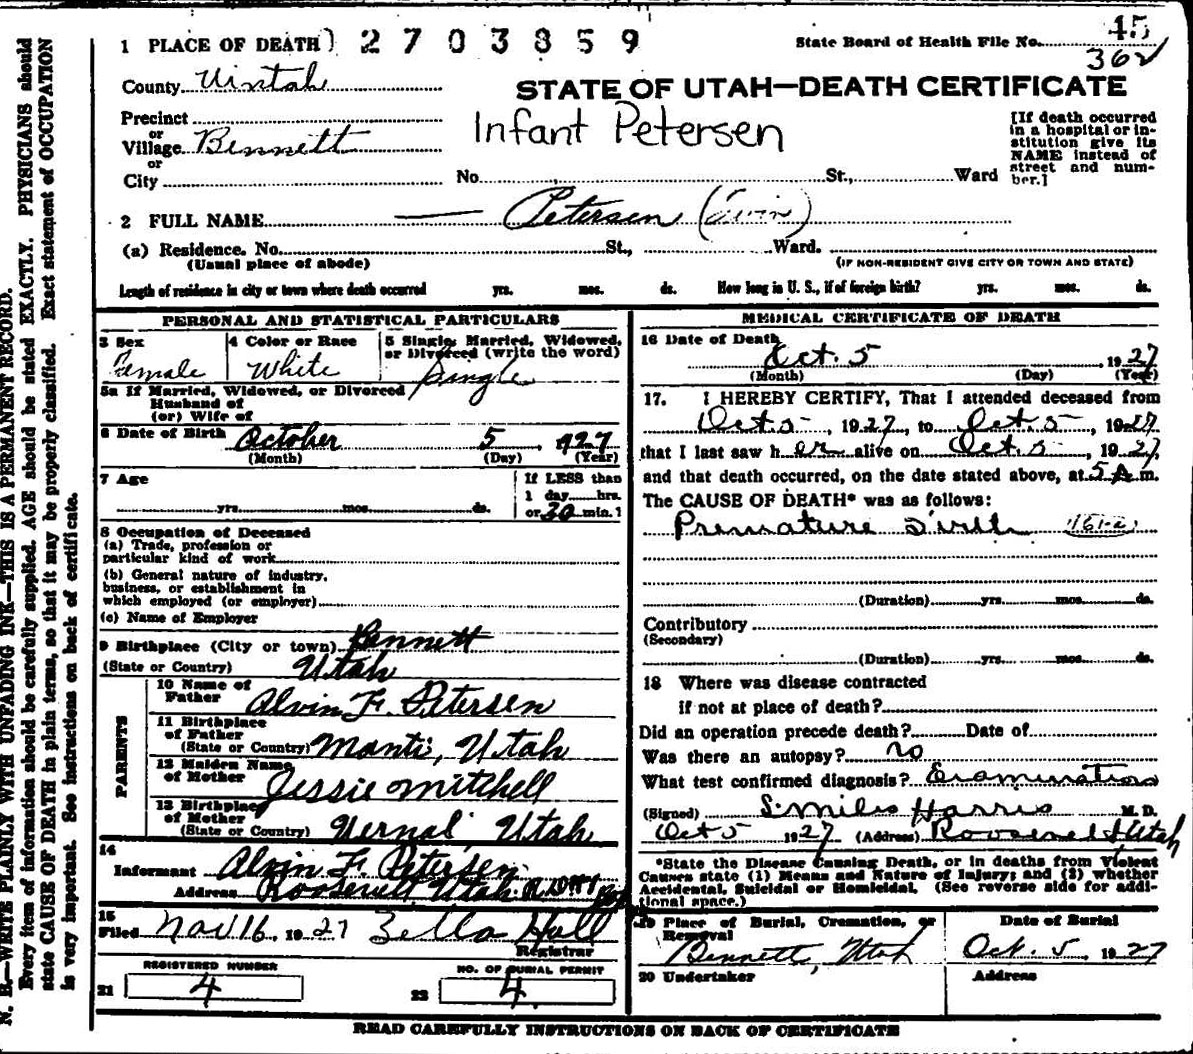 1 PLACE OF DEATH) 2703859
State Board of Health File No. 45
362
County Uintah
STATE OF UTAH—DEATH CERTIFICATE
Precinct
or
Village Bennett
or
City
Infant Petersen
No. St., Ward
[If death occurred
in a hospital or in-
stitution give its
NAME instead of
street and num-
ber.]
2 FULL NAME Petersen (Twin)
(a) Residence. No. St., Ward.
(Usual place of abode)
(IF NON-RESIDENT GIVE CITY OR TOWN AND STATE)
Length of residence in city or town where death occurred yrs. mos. ds. How long in U. S., if of foreign birth? yrs. mos. ds.
PERSONAL AND STATISTICAL PARTICULARS
3 Sex
Female
4 Color or Race
White
5 Single, Married, Widowed,
or Divorced (write the word)
Single
5a If Married, Widowed, or Divorced
Husband of
(or) Wife of
6 Date of Birth October 5, 1927
(Month) (Day) (Year)
7 Age
yrs. mos. ds.
If LESS than
1 day hrs.
or 30 min.]
8 Occupation of Deceased
(a) Trade, profession or
particular kind of work
(b) General nature of industry,
business, or establishment in
which employed (or employer)
(c) Name of Employer
9 Birthplace (City or town) Bennett
(State or Country) Utah
PARENTS
10 Name of
Father Alvin F. Petersen
11 Birthplace
of Father
(State or Country) Manti, Utah
12 Maiden Name
of Mother Jessie Mitchell
13 Birthplace
of Mother
(State or Country) Vernal, Utah
14
Informant Alvin F. Petersen
Address Roosevelt, Utah
15
Filed Nov 16, 1927 Zella Hall
Registrar
REGISTERED NUMBER
21 4
NO. OF BURIAL PERMIT
22 4
MEDICAL CERTIFICATE OF DEATH
16 Date of Death
Oct. 5 1927
(Month) (Day) (Year)
17. I HEREBY CERTIFY, That I attended deceased from
Oct 5, 1927, to Oct 5, 1927
that I last saw her alive on Oct 5, 1927
and that death occurred, on the date stated above, at 5 A.m.
The CAUSE OF DEATH* was as follows:
Premature Birth
(Duration) yrs. mos. ds.
Contributory
(Secondary)
(Duration) yrs. mos. ds.
18 Where was disease contracted
if not at place of death?
Did an operation precede death? Date of
Was there an autopsy? no
What test confirmed diagnosis? Examination
(Signed) Miles Harris M. D.
Oct 5 1927 (Address) Roosevelt Utah
*State the Disease Causing Death, or in deaths from Violent
Causes state (1) Means and Nature of Injury; and (2) whether
Accidental, Suicidal or Homicidal. (See reverse side for addi-
tional space.)
19 Place of Burial, Cremation, or
Removal
Bennett, Utah
Date of Burial
Oct. 5, 1927
20 Undertaker
Address
READ CAREFULLY INSTRUCTIONS ON BACK OF CERTIFICATE
N. B.—WRITE PLAINLY WITH UNFADING INK—THIS IS A PERMANENT RECORD.
Every item of information should be carefully supplied. AGE should be stated EXACTLY. PHYSICIANS should
state CAUSE OF DEATH in plain terms, so that it may be properly classified. Exact statement of OCCUPATION
is very important. See instructions on back of certificate.